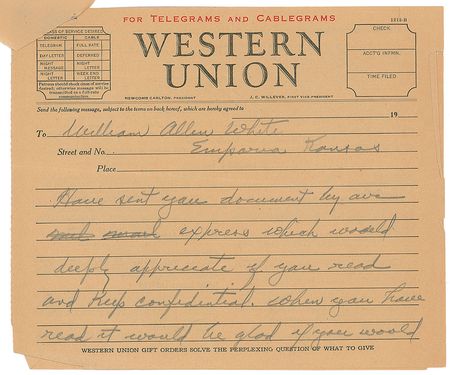 FOR TELEGRAMS AND CABLEGRAMS
1212-B
CLASS OF SERVICE DESIRED
DOMESTIC CABLE
TELEGRAM FULL RATE
DAY LETTER DEFERRED
NIGHT MESSAGE NIGHT LETTER
NIGHT LETTER WEEK END LETTER
Patrons should check class of service desired; otherwise message will be transmitted as a full-rate communication.
WESTERN UNION
NEWCOMB CARLTON, PRESIDENT J. C. WILLEVER, FIRST VICE-PRESIDENT
CHECK
ACCT'G INFMN.
TIME FILED
Send the following message, subject to the terms on back hereof, which are hereby agreed to
19
To William Allen White
Street and No. Emporia Kansas
Place
Have sent you document by
express which would
deeply appreciate if you read
and keep confidential. When you have
read it would be glad if you would
WESTERN UNION GIFT ORDERS SOLVE THE PERPLEXING QUESTION OF WHAT TO GIVE